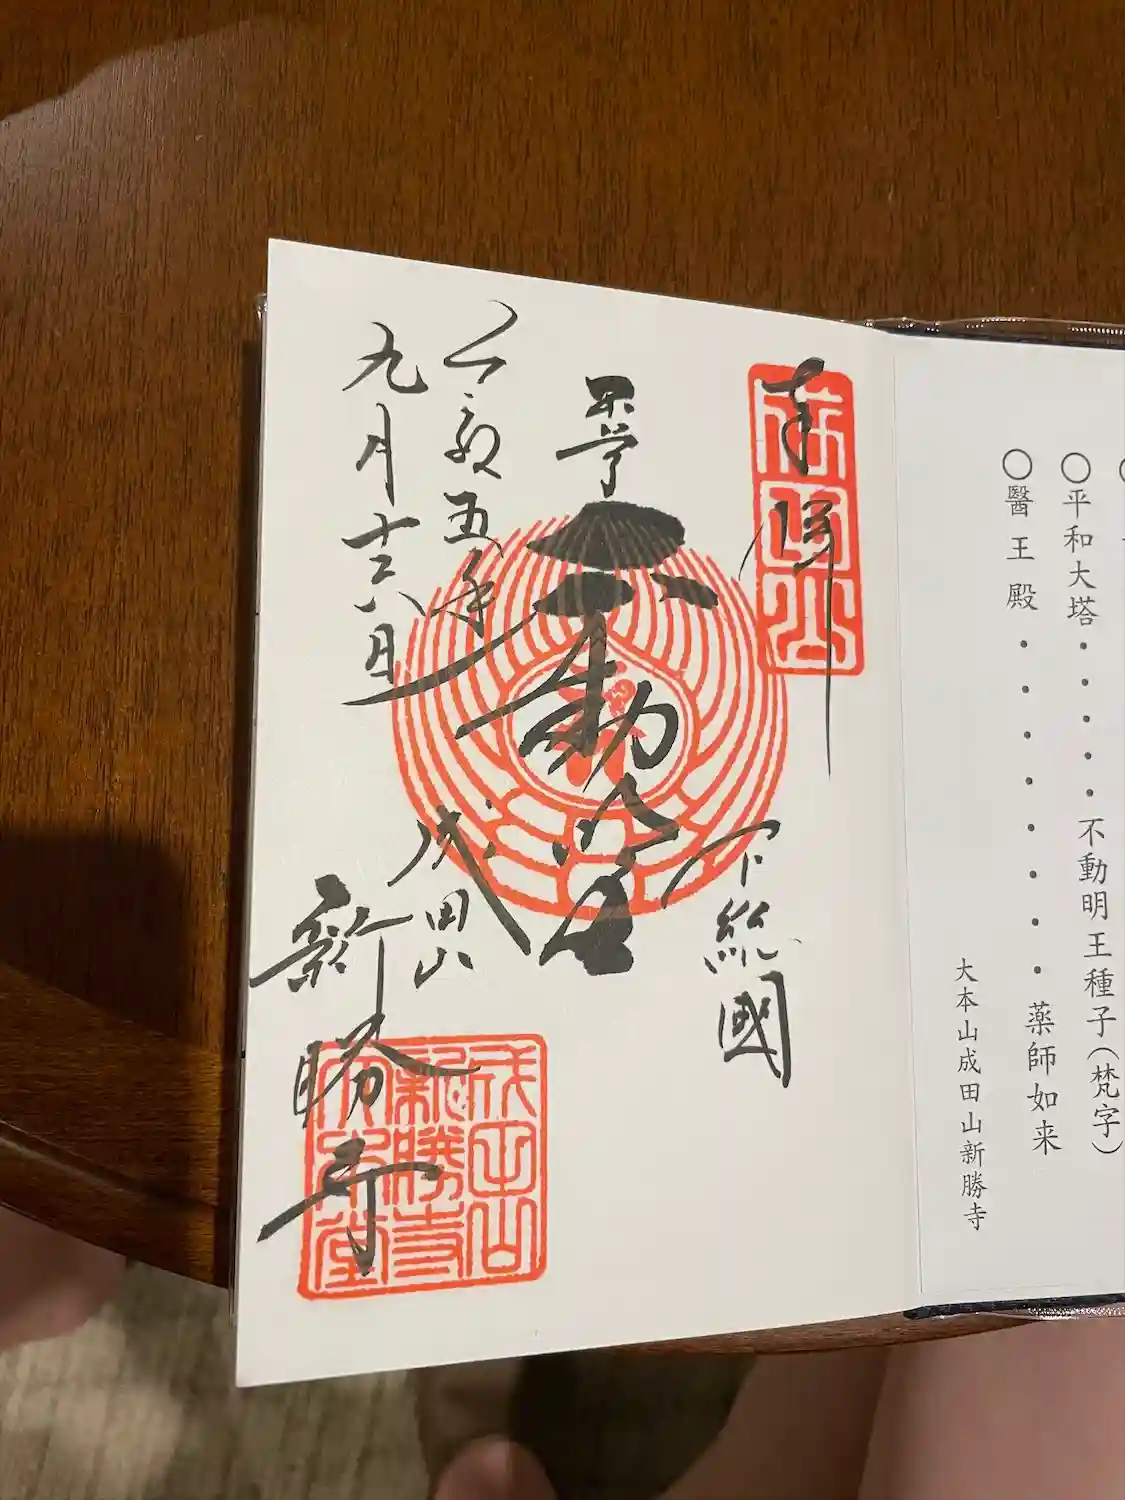 ○平和大塔・・・・・不動明王種子(梵字)
○醫王殿・・・・・・・・薬師如来
大本山成田山新勝寺
奉拝
成田山
下総國
本尊
不動明王
令和五年
九月十六日
成田山
新勝寺
成田山
新勝寺
大本堂